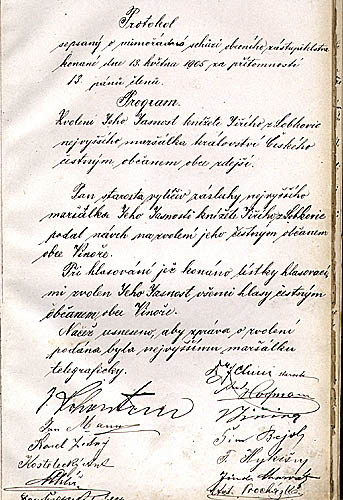 Protokol
sepsaný o mimořádné schůzi obecního zastupitelstva
konané dne 13. května 1905 za přítomnosti
13. pánů členů.
Program.
Zvolení Jeho Jasnost knížete Jiřího z Lobkovic
nejvyššího maršálka království Českého
čestným občanem obce zdejší.
Pan starosta vylíčiv zásluhy nejvyššího
maršálka Jeho Jasnosti knížete Jiřího z Lobkovic
podal návrh na zvolení jeho čestným občanem
obce Vinoře.
Při hlasování jež konáno lístky hlasovací
mi zvolen Jeho Jasnost všemi hlasy čestným
občanem obce Vinoře.
Načež usneseno, aby zpráva o zvolení
podána byla nejvyššímu maršálku
telegraficky.
Hofmann
Jan Mann
Karel
Kostelecký Ant